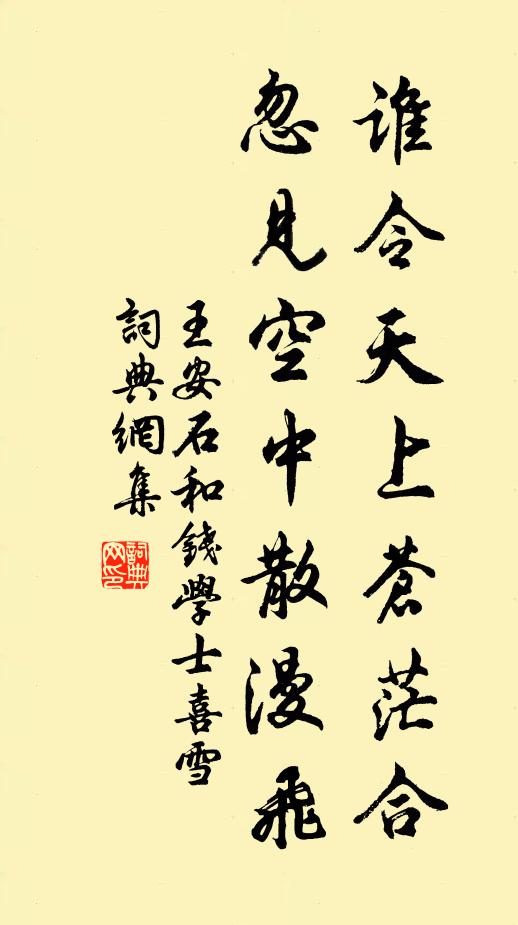 誰令天上蒼茫合
忽見空中散漫飛
王安石和錢學士喜雪
詞典網集
詞典
网印